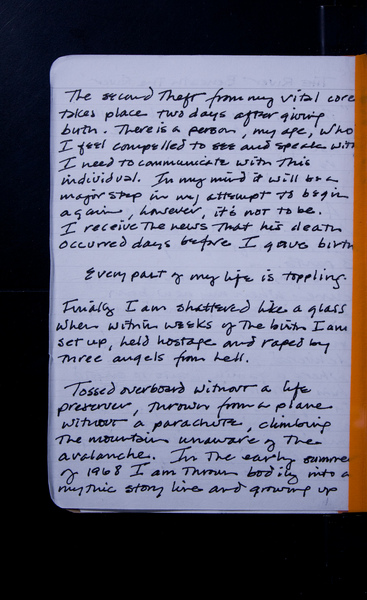 The second theft from my vital core
takes place two days after giving
birth. There is a person, my age, who
I feel compelled to see and speak with
I need to communicate with this
individual. In my mind it will be a
major step in my attempt to begin
again, however, it's not to be.
I receive the news that his death
occurred days before I gave birth
Every part of my life is toppling.
Finally I am shattered like a glass
when within weeks of the birth I am
set up, held hostage and raped by
three angels from hell.
Tossed overboard without a life
preserver, thrown from a plane
without a parachute, climbing
the mountain unaware of the
avalanche. In the early summer
of 1968 I am thrown bodily into a
mythic story line and growing up